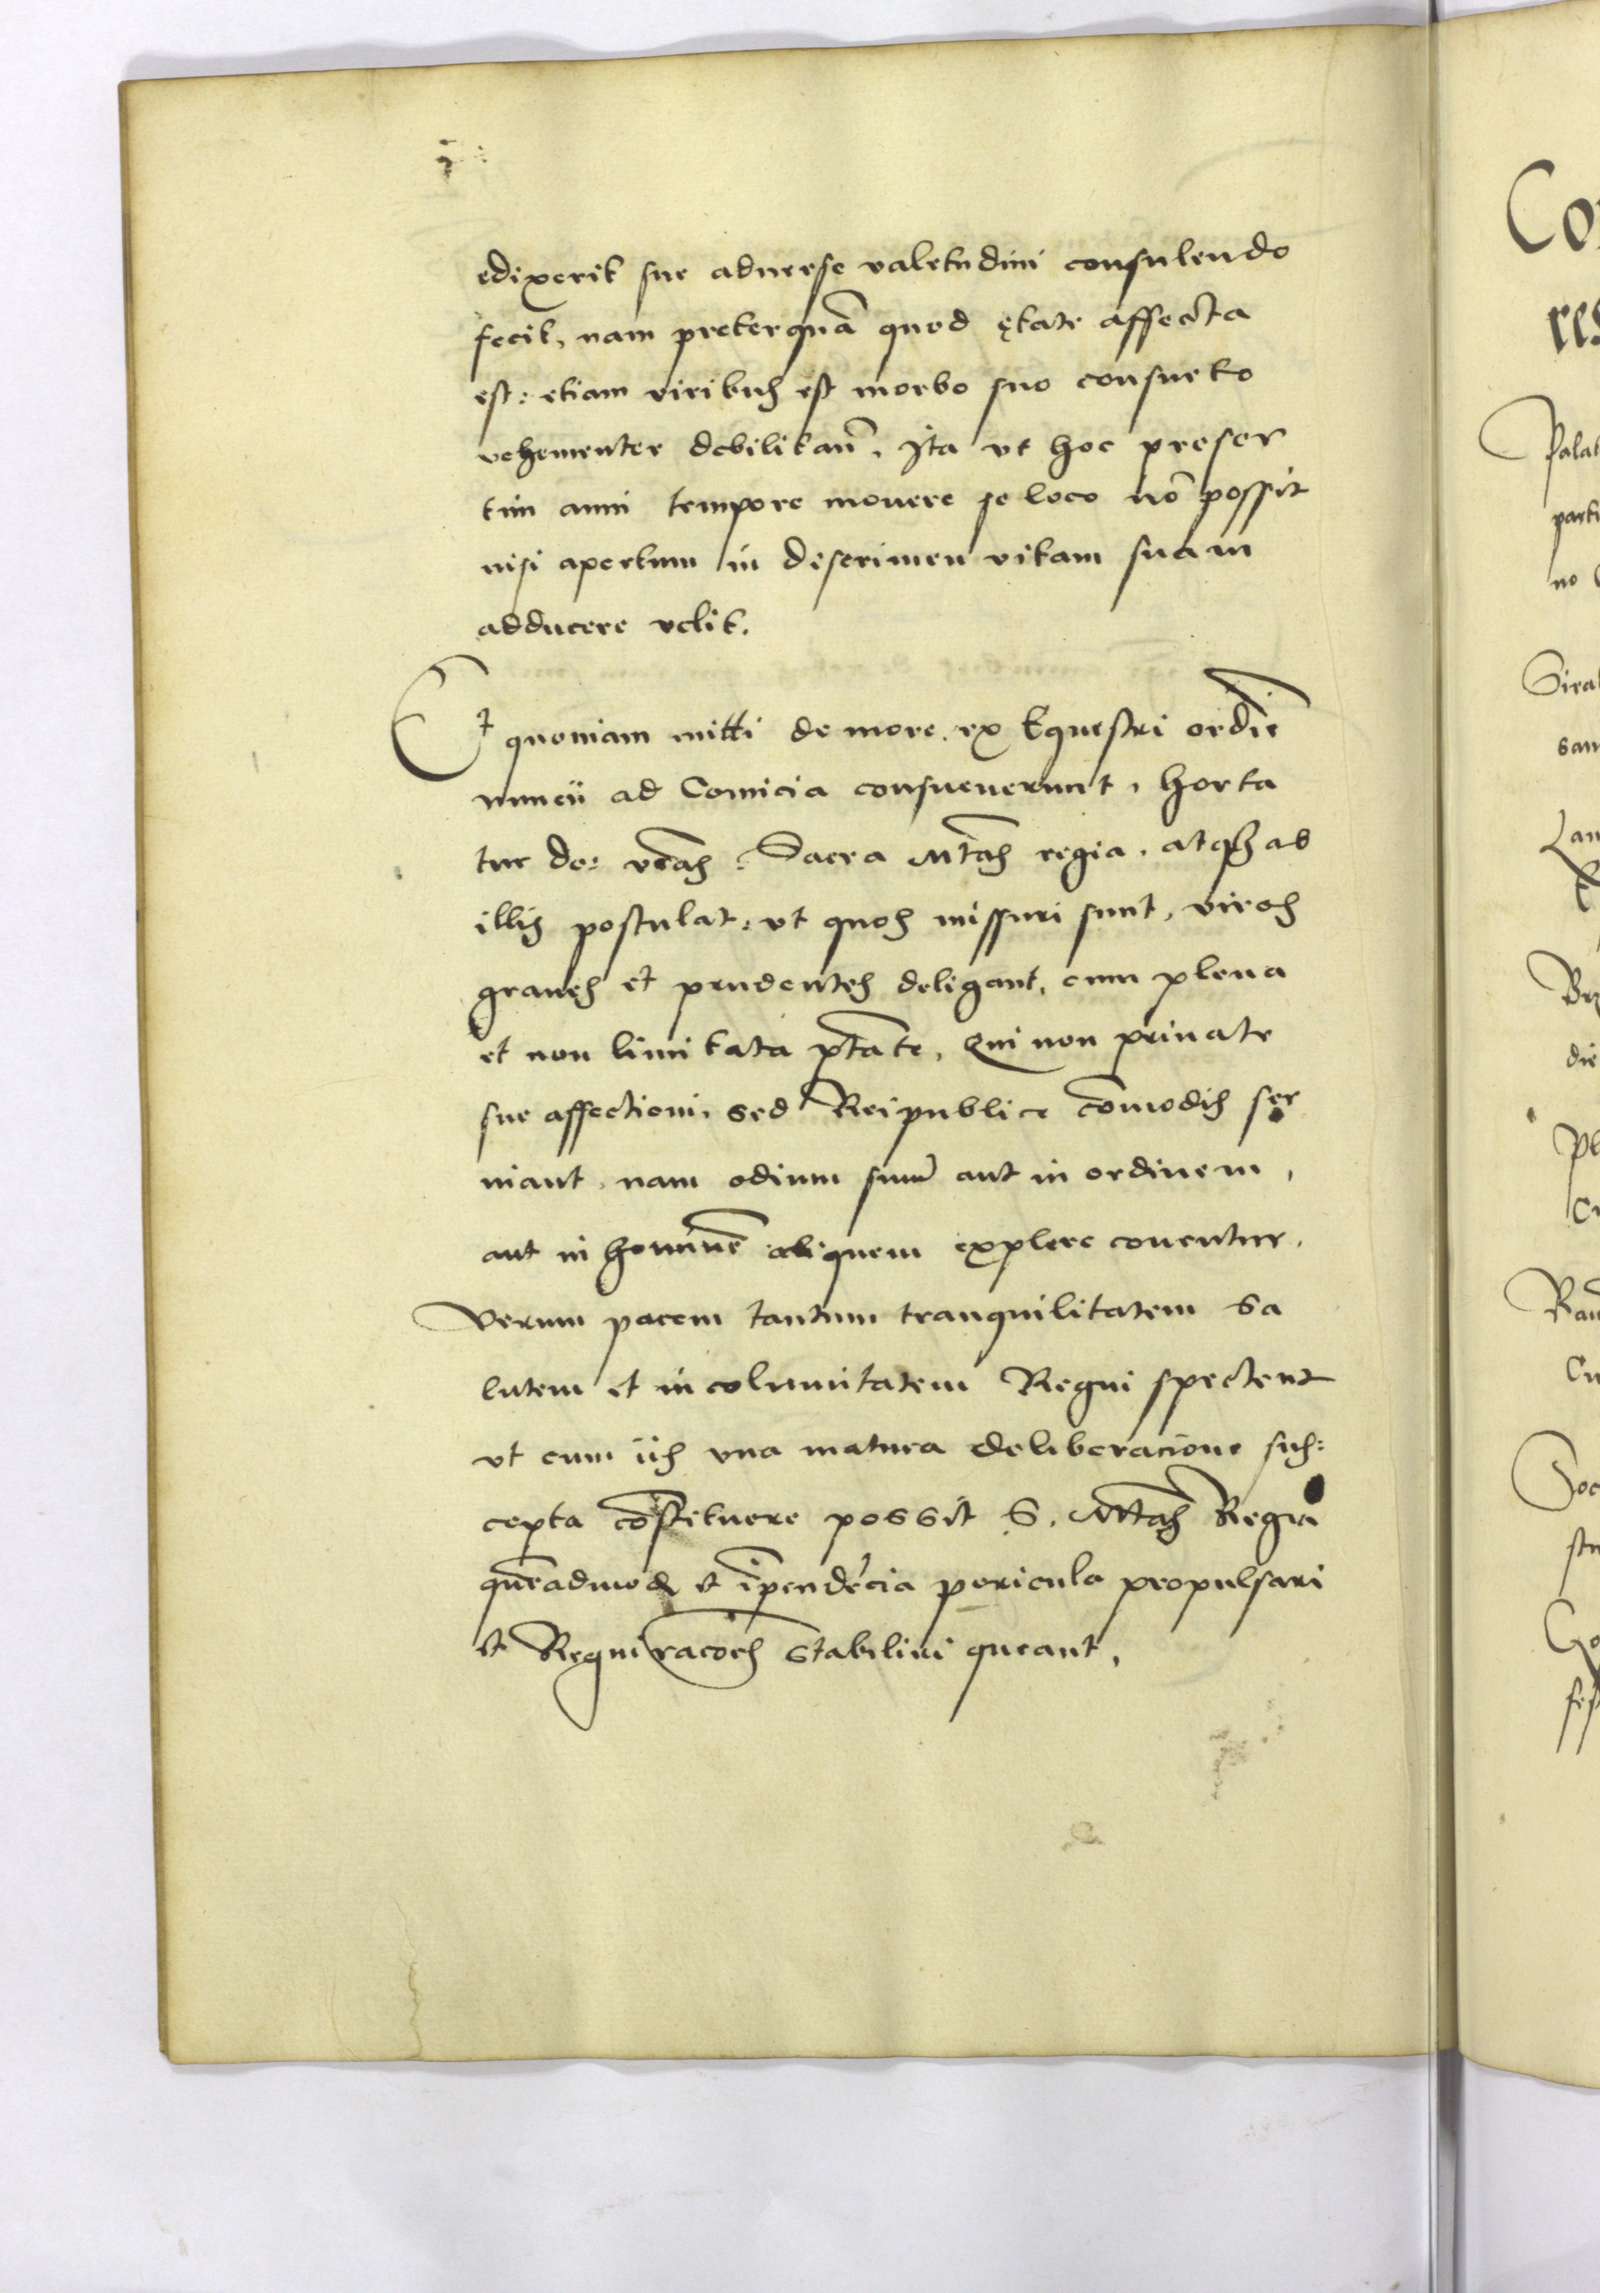 edixerit sue aduerse valetudini consulendo
fecit, nam preterquā quod ętate affecta
est: etiam viribus est morbo suo consueto
vehementer debilitam̄, Ita vt hoc preser
tim anni tempore mouere se loco nō possit
nisi apertum in discrimen vitam suam
adducere velit.
Et quoniam mitti de more ex Equestri ordīe
nuncii ad Comicia consueuerunt, horta
tur do: vras̄ Sacra Mtas̄ regia, atq3 ab
illis postulat: vt quos missuri sunt, viros
graues et prudentes deligant, cum plena
et non limitata ptāte, Qui non priuate
sue affectioni, sed Reipublice cōmodis ser
uiant, nam odium suum aut in ordinem,
aut in hominē aliquem explere conentur.
Verum pacem tantum tranquilitatem sa
lutem et incolumitatem Regni spectent
vt cum iis vna matura deliberacione sus:
cepta cōstituere possit S. Mtas̄ Regia
quēadmod et īpendēcia pericula propulsari
et Regni racōes stabiliri queant,
Co
Palat
parti
no
Sirad
san
Lan
die
Pl
Cu